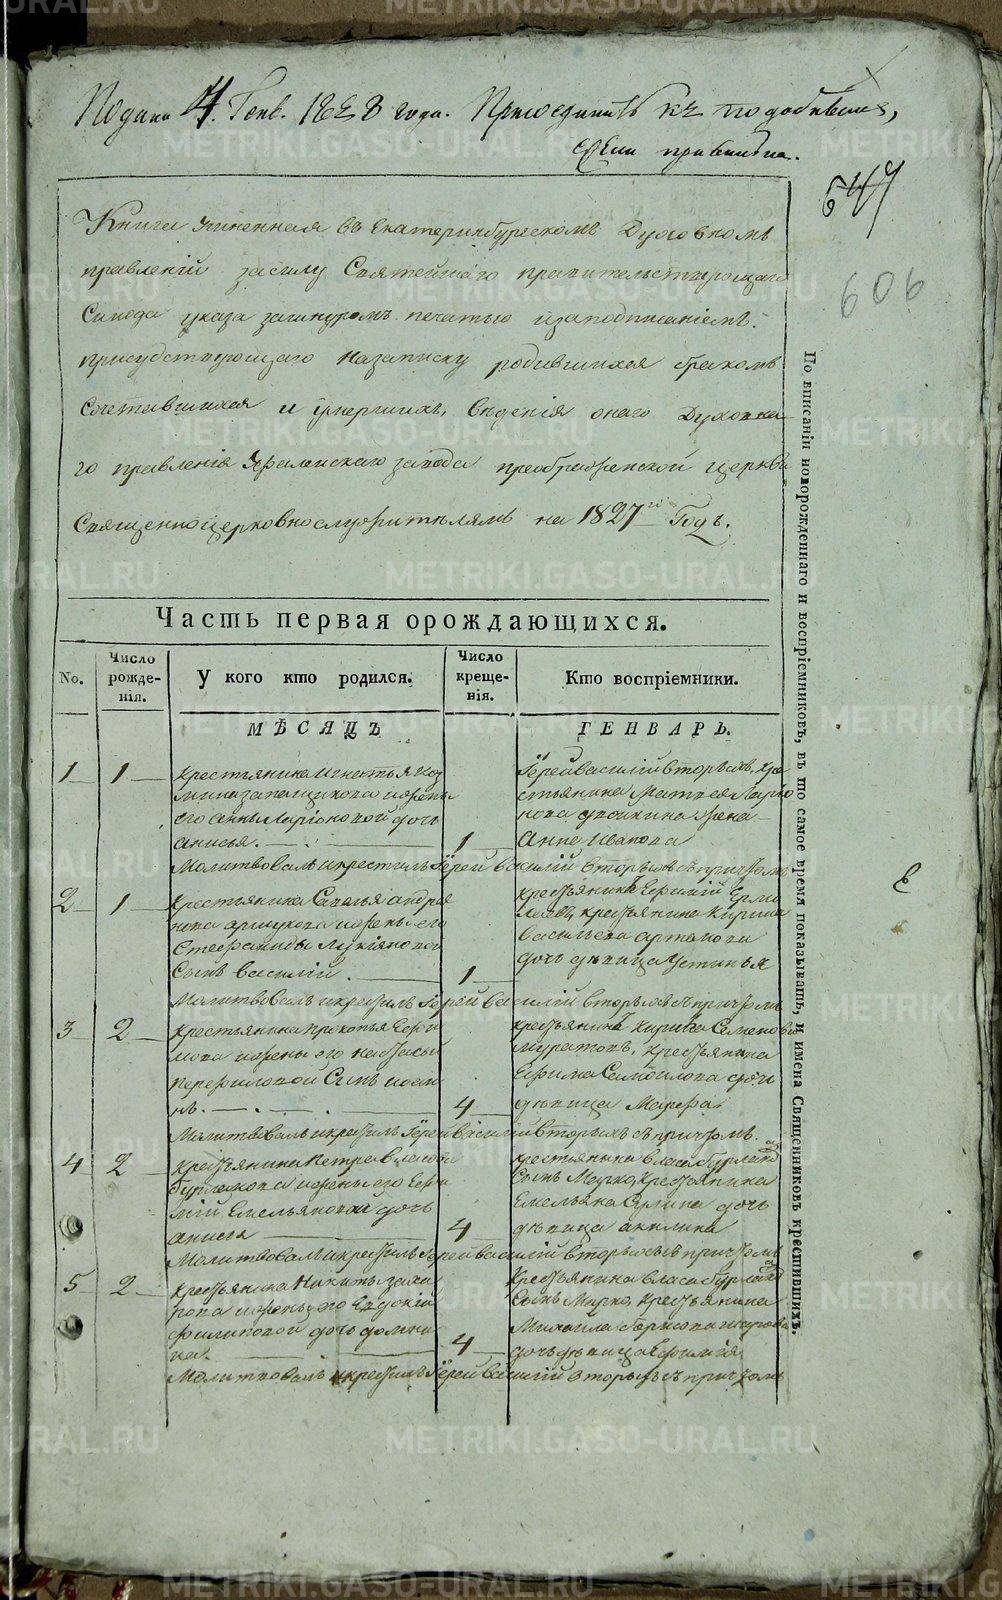 Подана 4. Генв. 1828 года. Присоединить къ подобнымъ,
547
606
Книга учиненная въ Екатеринбургскомъ Духовномъ
правленіи засилу Святейшаго правительствующаго
Синода указа зашнуромъ печатью изаподписаніемъ
присудствующаго назаписку родившихся бракомъ
Сочетавшихся и умершихъ, вѣденія онаго Духовна-
го правленія Уфалейскаго завода преображенской церкви
Священноцерковнослужителямъ на 1827й Годъ.
Часть первая орождающихся.
No.
Число рожде- нія.
У кого кто родился.
Число креще- нія.
Кто воспріемники.
МѢСЯЦЪ
ГЕНВАРЬ.
1
1
крестьянина игнатья коз
мина запащикова ижены
его анны Ларіоновой дочь
анисья.
1
Іерей василій вторыхъ, кре
стьянина матвея Ларио
нова жена
Анна Иванова
Молитвовалъ икрестилъ Іерей василій вторыхъ съ причтомъ
2
1
Крестьянина Савелья андрея
нова ижены его
Стефаниды Лукіяновой
Сынъ василій.
1
крестьянинъ Ефимій Ерми
лаевъ, крестьянина Кирила
васильева артемова
дочь дѣвица устинья
Молитвовалъ икрестилъ Іерей василій вторыхъ съ причтомъ
3
2
крестьянина Прокопья Ефи
мова ижены его настасьи
перфиловой Сынъ иоан
нъ.
4
крестьянинъ Кирила Семеновъ
муратовъ, крестьянина
Ефима Самойлова дочь
дѣвица Марфа.
Молитвовалъ икрестилъ Іерей василій вторыхъ съ причтомъ.
4
2
крестьянина Петра власова
бурлакова ижены его Ефи
міи Емельяновой дочь
анисья
4
крестьянина власа бурлакова
Сынъ Марко, крестьянина
Емельяна дочь
дѣвица акилина
Молитвовалъ икрестилъ Іерей василій вторыхъ съ причтомъ
5
2
крестьянина Никиты заха
рова ижены его Евдокіи
филиповой дочь домни
ка.
4
Крестьянина власа бурлакова
Сынъ Марко, Крестьянина
Михаила Борисова
дочь дѣвица Ефимія
Молитвовалъ икрестилъ Іерей василій вторыхъ съ причтомъ
По вписаніи новорожденнаго и воспріемниковъ, въ то самое время показывать, и имена Священниковъ крестившихъ.
METRIKI.GASO-URAL.RU